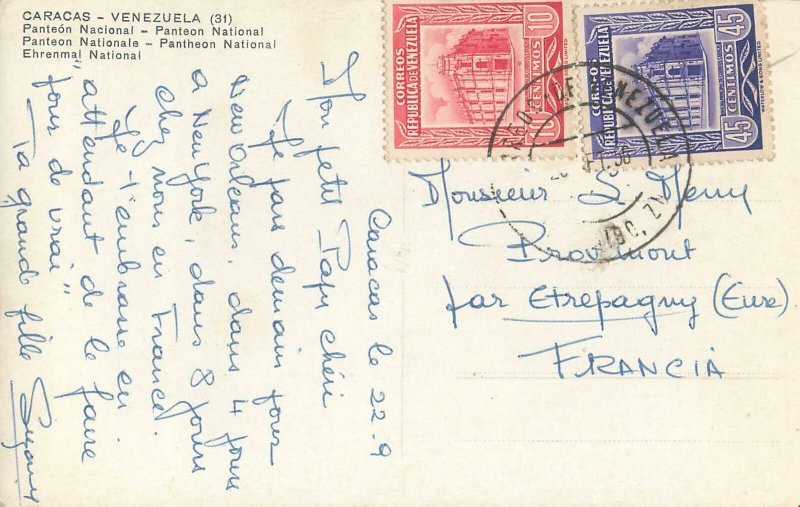 CARACAS - VENEZUELA (31)
Panteón Nacional - Panteon National
Panteon Nationale - Pantheon National
Ehrenmal National
CORREOS
REPUBLICA DE VENEZUELA
10
CENTIMOS
10
CORREOS
REPUBLICA DE VENEZUELA
45
CENTIMOS
45
Caracas le 22-9
Mon petit Papy chéri
Je pars demain pour
New Orleans, dans 4 jours
a New York, dans 8 jours
chez nous en France.
Je t'embrasse en
attendant de le faire
"pour de vrai"
Ta grande fille
Monsieur
par Etrepagny (Eure)
FRANCIA